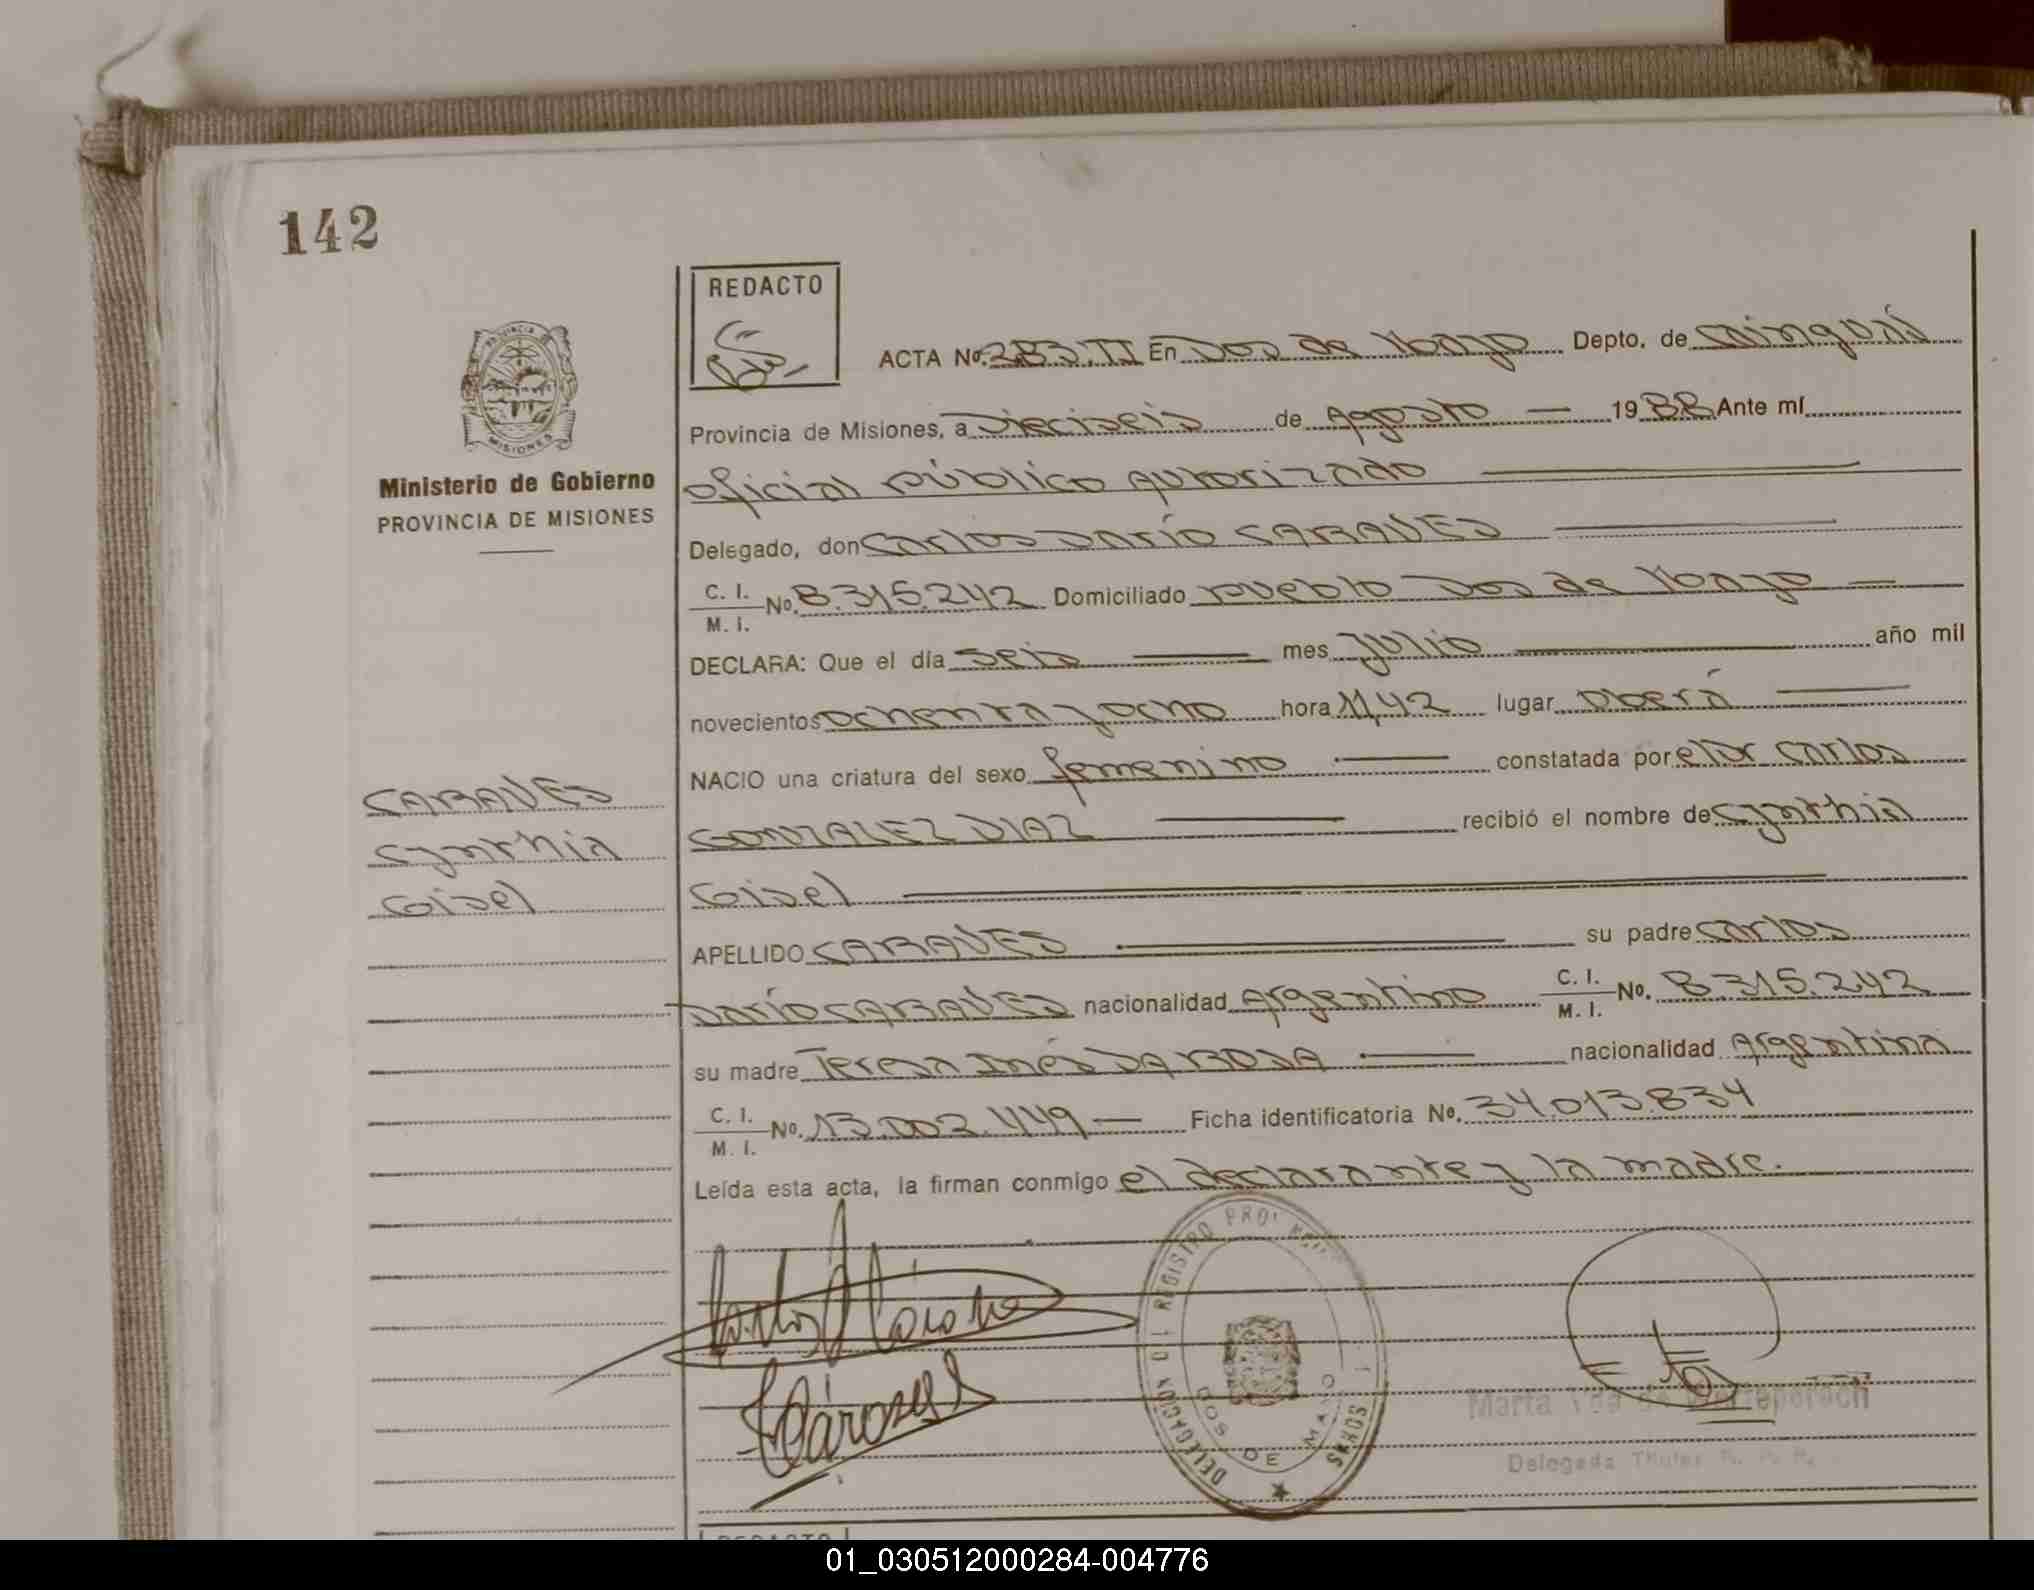 142
REDACTO
ACTA No. 283.II En Dos de Mayo Depto. de Cainguás
PROVINCIA
MISIONES
Ministerio de Gobierno
PROVINCIA DE MISIONES
Provincia de Misiones, a Dieciseis de Agosto 19 88 Ante mí
oficial público autorizado
Delegado, don Carlos Darío CARAVES
C. I.
M. I. No. 8.315.242 Domiciliado pueblo Dos de Mayo
DECLARA: Que el día seis mes Julio año mil
novecientos ochenta y ocho hora 11,42 lugar Oberá
NACIO una criatura del sexo femenino constatada por el Dr Carlos
GONZALEZ DIAZ recibió el nombre de Cynthia
Gisel
CARAVES
Cynthia
Gisel
APELLIDO CARAVES su padre Carlos
Darío CARAVES nacionalidad Argentino C. I.
M. I. No. 8.315.242
su madre Teresa Inés DA ROSA nacionalidad Argentina
C. I.
M. I. No. 13.002.449 Ficha identificatoria No. 34.013.834
Leída esta acta, la firman conmigo el declarante y la madre.
DELEGACION REGISTRO
DOS DE MAYO
Marta de
Delegada Titular
REDACTO
01_030512000284-004776